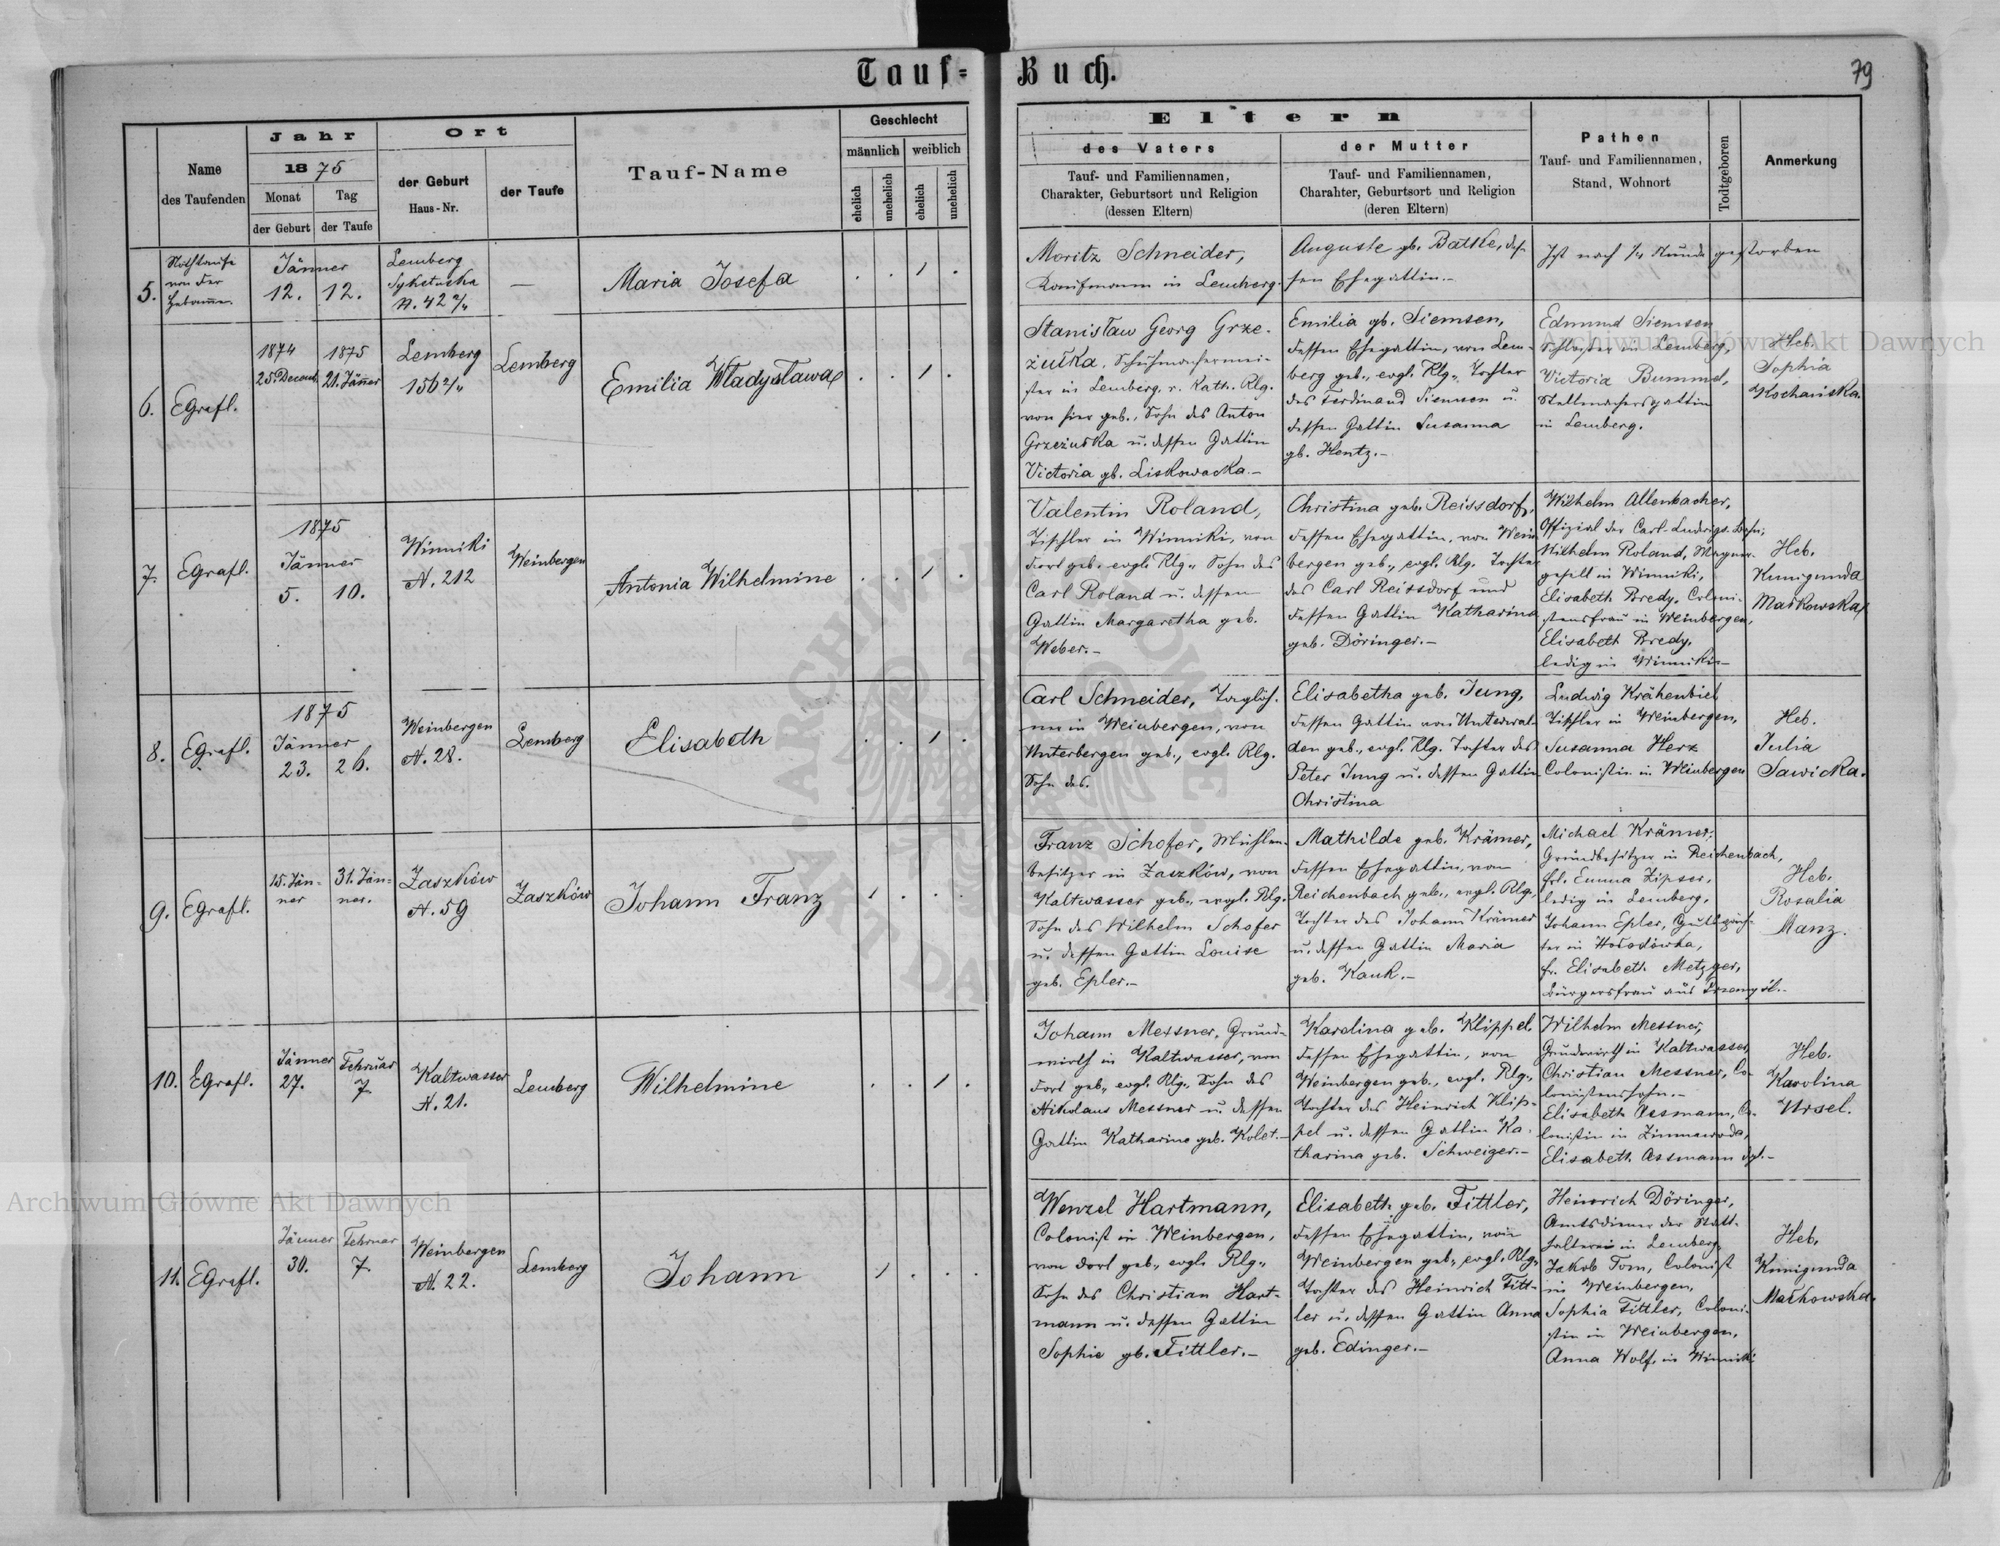 Tauf-Buch.
79
Name des Taufenden
Jahr 1875
Monat der Geburt
Tag der Taufe
Ort
der Geburt Haus-Nr.
der Taufe
Tauf-Name
Geschlecht
männlich
weiblich
ehelich
unehelich
ehelich
unehelich
Eltern
des Vaters
Tauf- und Familiennamen,
Charakter, Geburtsort und Religion
(dessen Eltern)
der Mutter
Tauf- und Familiennamen,
Charahter, Geburtsort und Religion
(deren Eltern)
Pathen
Tauf- und Familiennamen,
Stand, Wohnort
Todtgeboren
Anmerkung
5.
Nothtaufe
von der
Hebamme
Jänner
12. 12.
Lemberg
Sykstuska
N. 42 2/4
—
Maria Josefa
Moritz Schneider,
Kaufmann in Lemberg.
Auguste gb. Batske, des-
sen Ehegattin.-
Ist nach 1/4 Stunde gestorben
6.
EGrafl.
1874
25. Decemb.
1875
21. Jänner
Lemberg
156 2/4
Lemberg
Emilia Władysława
Stanisław Georg Grze-
żułka, Schuhmachermei-
ster in Lemberg, r. Kath. Rlg.
von hier geb., Sohn des Anton
Grzeżułka u. dessen Gattin
Victoria gb. Liskowacka.-
Emilia gb. Siemsen,
dessen Ehegattin, von Lem-
berg geb., evgl. Rlg., Tochter
des Ferdinand Siemsen u.
dessen Gattin Susanna
gb. Hentz.-
Edmund Siemsen
Schlosser in Lemberg,
Victoria Bummel,
Stellmachersgattin
in Lemberg.
Heb.
Sophia
Kochańska.
7.
EGrafl.
1875
Jänner
5. 10.
Winniki
N. 212
Weinbergen
Antonia Wilhelmine
Valentin Roland,
Tischler in Winniki, von
dort geb. evgl. Rlg., Sohn des
Carl Roland u. dessen
Gattin Margaretha geb.
Weber.-
Christina geb. Reissdorf,
dessen Ehegattin, von Wein-
bergen geb., evgl. Rlg. Tochter
des Carl Reissdorf und
dessen Gattin Katharina
geb. Döringer.-
Wilhelm Allenbacher,
Offizial der Carl-Ludwigs-Bahn,
Wilhelm Roland, Wagner-
gesell in Winniki,
Elisabeth Bredy, Coloni-
stensfrau in Weinbergen,
Elisabeth Bredy,
ledig in Winniki.-
Heb.
Kunigunda
Małkowska
8.
EGrafl.
1875
Jänner
23. 26.
Weinbergen
N. 28.
Lemberg
Elisabeth
Carl Schneider, Taglöh-
ner in Weinbergen, von
Unterbergen geb., evgl. Rlg.
Sohn des.
Elisabetha geb. Jung,
dessen Gattin von Unterwal-
den geb., evgl. Rlg. Tochter des
Peter Jung u. dessen Gattin
Christina
Ludwig Krähenbiel
Tischler in Weinbergen,
Susanna Herz
Colonistin in Weinbergen
Heb.
Julia
Sawicka.
9.
EGrafl.
15. Jän-
ner
31. Jän-
ner.
Zaszków
N. 59
Zaszków
Johann Franz
Franz Schofer, Mühlen-
besitzer in Zaszków, von
Kaltwasser geb., evgl. Rlg.
Sohn des Wilhelm Schofer
u. dessen Gattin Louise
geb. Epler.-
Mathilde geb. Krämer,
dessen Ehegattin, von
Reichenbach geb., evgl. Rlg.,
Tochter des Johann Krämer
u. dessen Gattin Maria
geb. Kauk.-
Michael Krämer,
Grundbesitzer in Reichenbach,
frl. Emma Zipser,
ledig in Lemberg,
Johann Epler, Gutspäch-
ter in
fr. Elisabeth Metzger,
Bürgersfrau aus Przemyśl.-
Heb.
Rosalia
Manz.
10.
EGrafl.
Jänner
27.
Februar
7.
Kaltwasser
N. 21.
Lemberg
Wilhelmine
Johann Messner, Grund-
wirth in Kaltwasser, von
dort geb., evgl. Rlg., Sohn des
Nikolaus Messner u. dessen
Gattin Katharine geb. Kolet.-
Karolina geb. Klippel.
dessen Ehegattin, von
Weinbergen geb., evgl. Rlg.,
Tochter des Heinrich Klip-
pel u. dessen Gattin Ka-
tharina geb. Schweiger.-
Wilhelm Messner,
Grundwirth in Kaltwasser,
Christian Messner, Co-
lonistenssohn.-
Elisabeth Assmann, Co-
lonistin in Zimnawoda,
Elisabeth Assmann dgl.-
Heb.
Karolina
Ursel.
11.
EGrafl.
Jänner
30.
Februar
7.
Weinbergen
N. 22.
Lemberg
Johann
Wenzel Hartmann,
Colonist in Weinbergen,
von dort geb., evgl. Rlg.,
Sohn des Christian Hart-
mann u. dessen Gattin
Sophie gb. Tittler.-
Elisabeth geb. Tittler,
dessen Ehegattin, von
Weinbergen geb., evgl. Rlg.
Tochter des Heinrich Titt-
ler u. dessen Gattin Anna
geb. Edinger.-
Heinrich Döringer,
Amtsdiener der Statt-
halterei in Lemberg,
Jakob Tom, Colonist
in Weinbergen,
Sophia Tittler, Coloni-
stin in Weinbergen,
Anna Wolf, in Winniki
Heb.
Kunigunda
Małkowska.
Archiwum Główne Akt Dawnych
Archiwum Główne Akt Dawnych